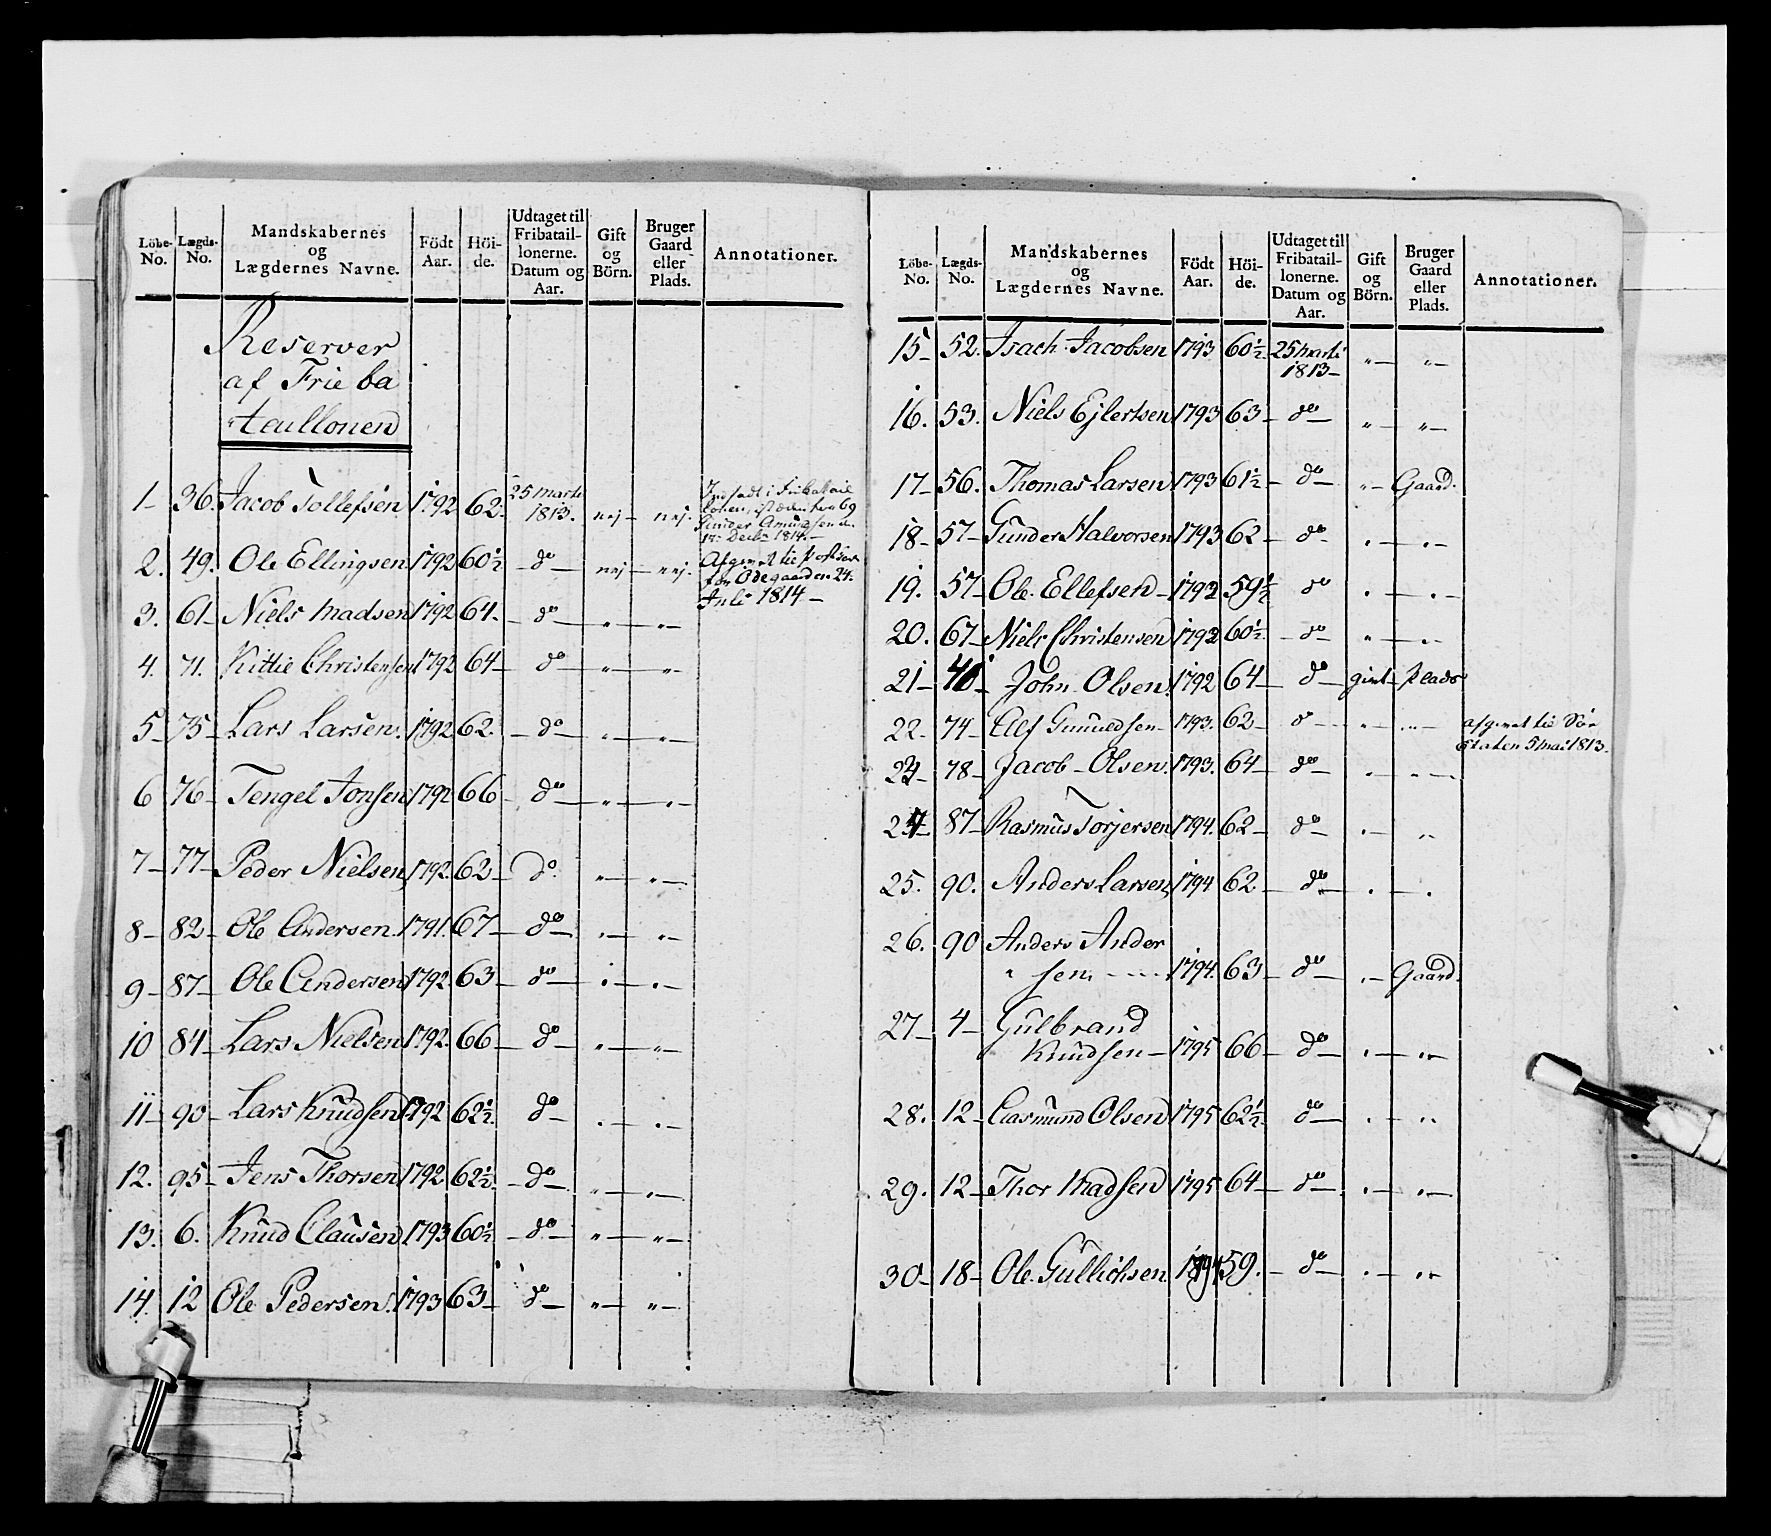 Löbe- No. Lægds- No. Mandskabernes og Lægdernes Navne. Födt Aar. Höi- de. Udtaget til Fribatail- lonerne. Datum og Aar. Gift og Börn. Bruger Gaard eller Plads. Annotationer.
Reserver
af Frie ba
taillonen
1- 36. Jacob Tollefsen. 1792 62. 25 Marti 1813. nej- nej.
2. 49. Ole Ellingsen 1792 60½ do nej- nej. Afgivet til
for Ödegaarden 24.
Juli 1814-
3. 61- Niels Madsen 1792 64. do „ „
4. 71. Kittil Christensen 1792 64- do „ „
5- 75- Lars Larsen. 1792. 62. do „ „
6 76- Tengel Jonsen 1792 66 do „ „
7- 77- Peder Nielsen 1792. 62- do „ „
8- 82- Ole Andersen. 1791. 67- do „ „
9- 87- Ole Andersen 1792. 63- do „ „
10 84- Lars Nielsen 1792. 66- do „ „
11- 90- Lars Knudsen 1792 62½. do „ „
12. 95- Jens Thorsen 1792 62½. do „ „
13. 6. Knud Clausen 1793 60½ do „ „
14. 12 Ole Pedersen. 1793 63- do „ „
Löbe- No. Lægds- No. Mandskabernes og Lægdernes Navne. Födt Aar. Höi- de. Udtaget til Fribatail- lonerne. Datum og Aar. Gift og Börn. Bruger Gaard eller Plads. Annotationer.
15- 52. Isach Jacobsen 1793 60½. 25 Marti 1813- „ „
16. 53. Niels Ejlertsen 1793 63- do „ „
17- 56. Thomas Larsen 1793 61½- do „ Gaard.
18- 57- Gunder Halvorsen 1793 62- do „ „
19. 57- Ole Ellefsen- 1792 59½ do „ „
20. 67- Niels Christensen 1792 60½. do „ „
21- 40- John Olsen 1792 64- do givt- Plads
22- 74- Alf Gunuldsen- 1793. 62- do „ „ afgivet til Söe
Etaten 5 Mai 1813.
23- 78- Jacob Olsen. 1793. 64- do „ „
24- 87- Rasmus Torjersen 1794. 62- do „ „
25. 90. Anders Larsen 1794 62- do „ „
26. 90 Anders Ander
sen 1794. 63- do „ Gaard.
27- 4- Gulbrand
Knudsen- 1795 66- do „ „
28. 12- Aasmund Olsen 1795 62½ do „ „
29. 12- Thor Madsen 1795 64- do „ „
30- 18- Ole Gullichsen 1794 59. do „ „